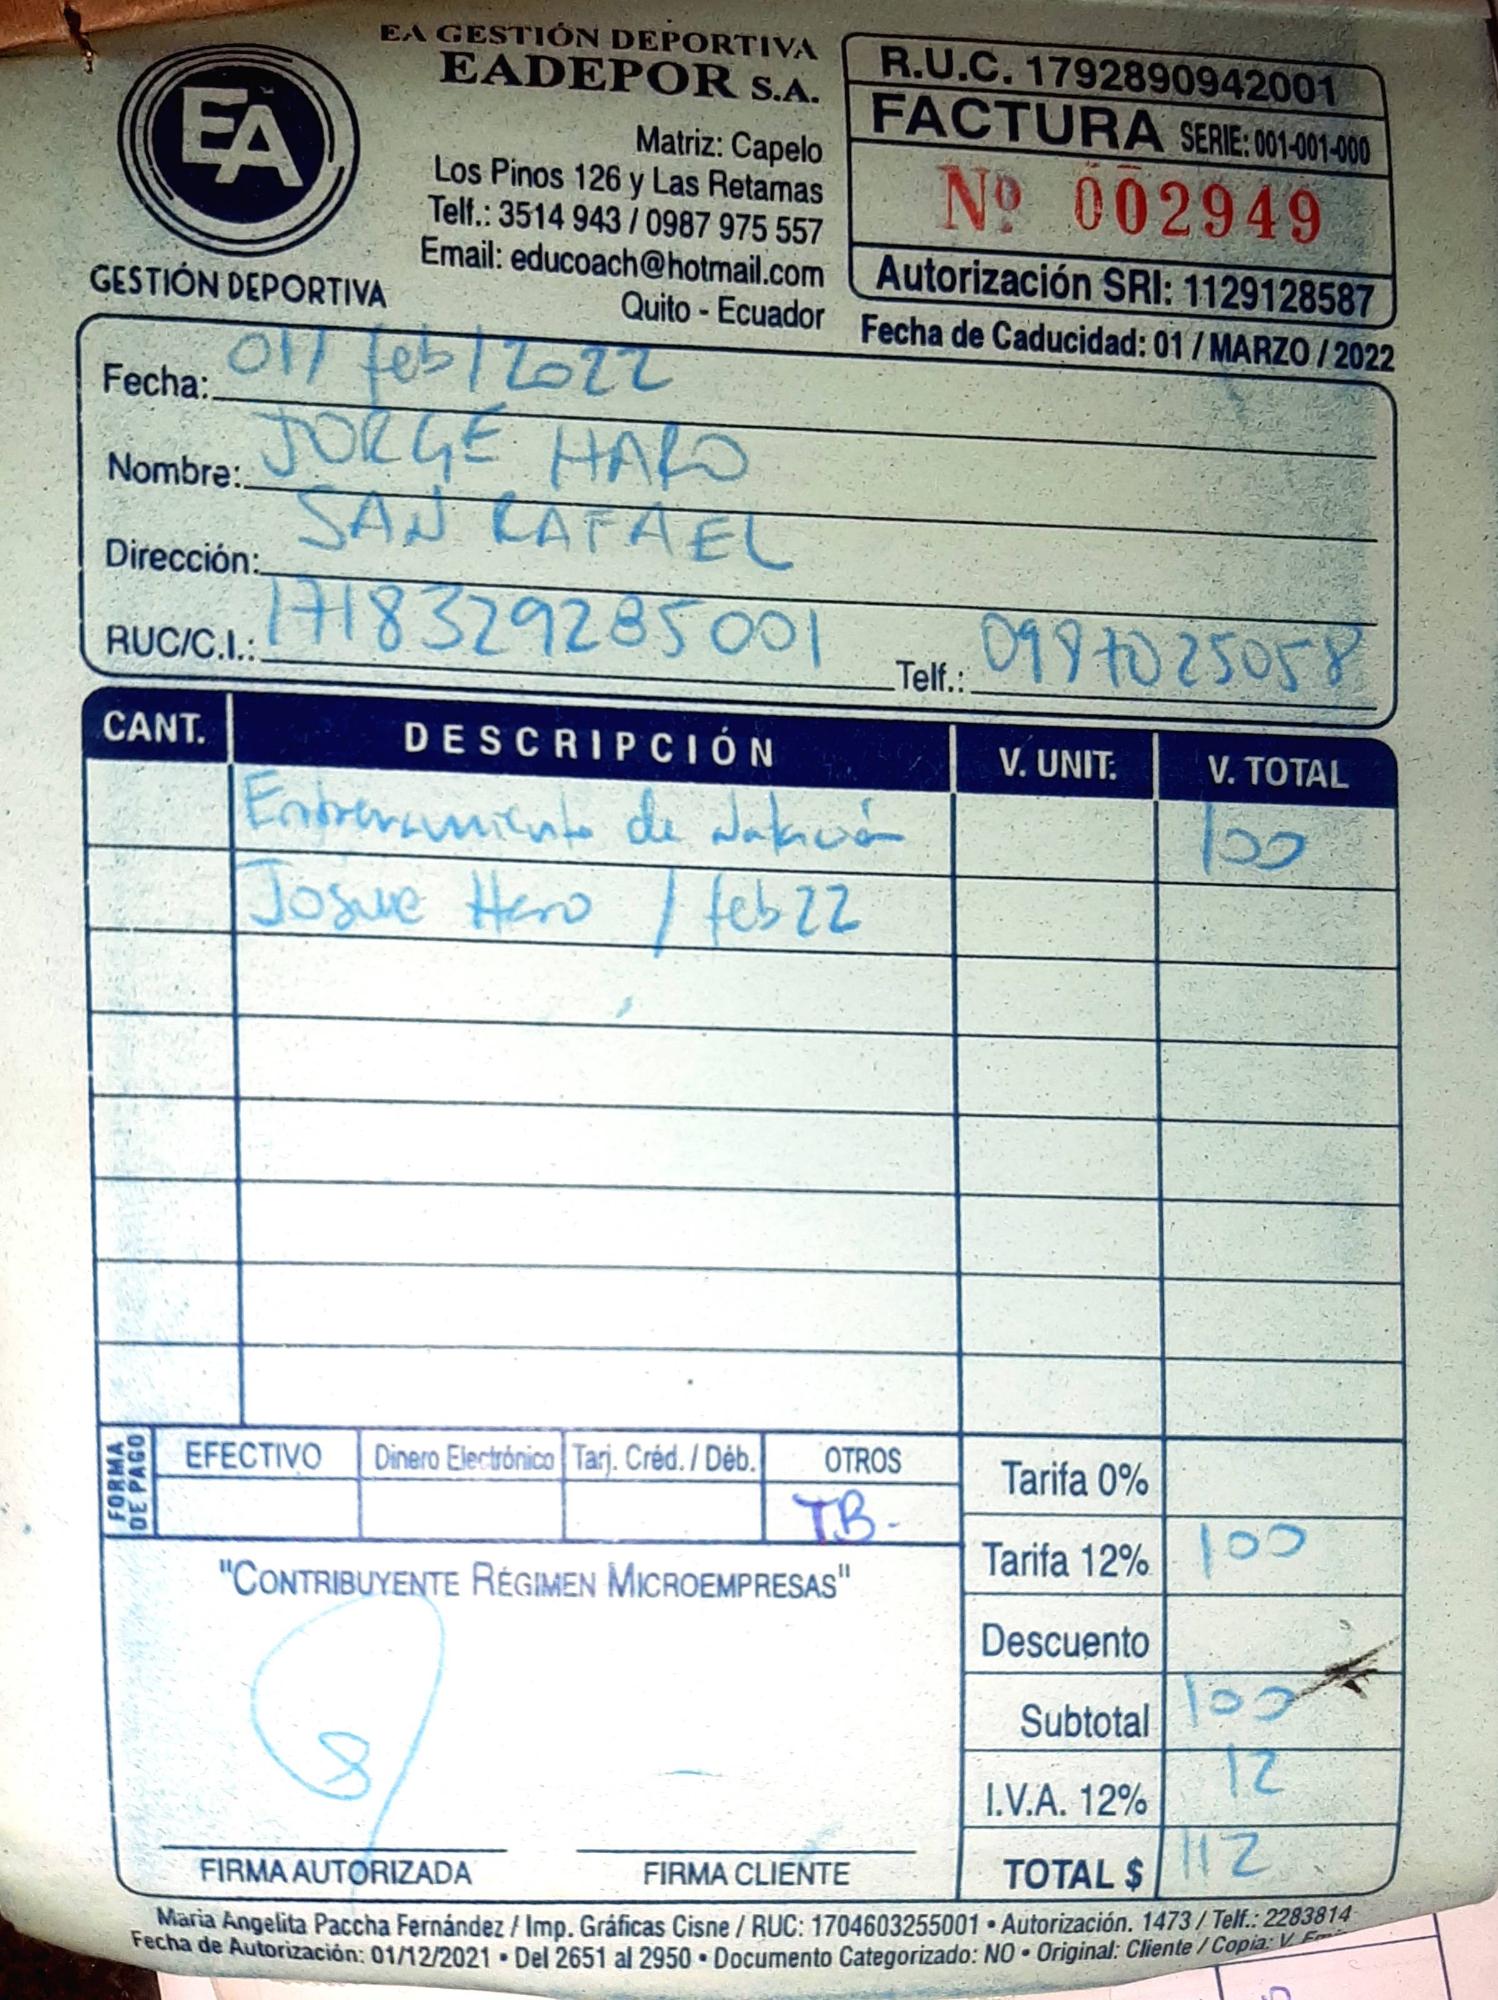 EA GESTIÓN DEPORTIVA
EADEPOR S.A.
EA
GESTIÓN DEPORTIVA
Matriz: Capelo
Los Pinos 126 y Las Retamas
Telf.: 3514 943 / 0987 975 557
Email: educoach@hotmail.com
Quito - Ecuador
R.U.C. 1792890942001
FACTURA SERIE: 001-001-000
Nº 002949
Autorización SRI: 1129128587
Fecha de Caducidad: 01 / MARZO / 2022
Fecha: 01/ feb / 2022
Nombre: JORGE HARO
Dirección: SAN RAFAEL
RUC/C.I.: 1718329285001 Telf.: 0987025058
CANT. DESCRIPCIÓN V. UNIT. V. TOTAL
Entrenamiento de natación 100
Josue Haro / feb 22
FORMA DE PAGO
EFECTIVO Dinero Electrónico Tarj. Créd. / Déb. OTROS
T.B.
Tarifa 0%
Tarifa 12% 100
Descuento
Subtotal 100
I.V.A. 12% 12
TOTAL $ 112
"CONTRIBUYENTE RÉGIMEN MICROEMPRESAS"
FIRMA AUTORIZADA FIRMA CLIENTE
Maria Angelita Paccha Fernández / Imp. Gráficas Cisne / RUC: 1704603255001 • Autorización. 1473 / Telf.: 2283814
Fecha de Autorización: 01/12/2021 • Del 2651 al 2950 • Documento Categorizado: NO • Original: Cliente / Copia: